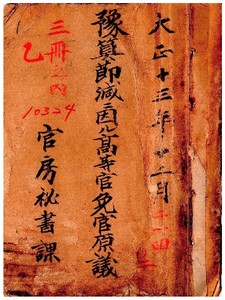 大正十三年十二月
豫算節減ニ因ル高等官免官原議
三冊之内
乙
10324
官房秘書課